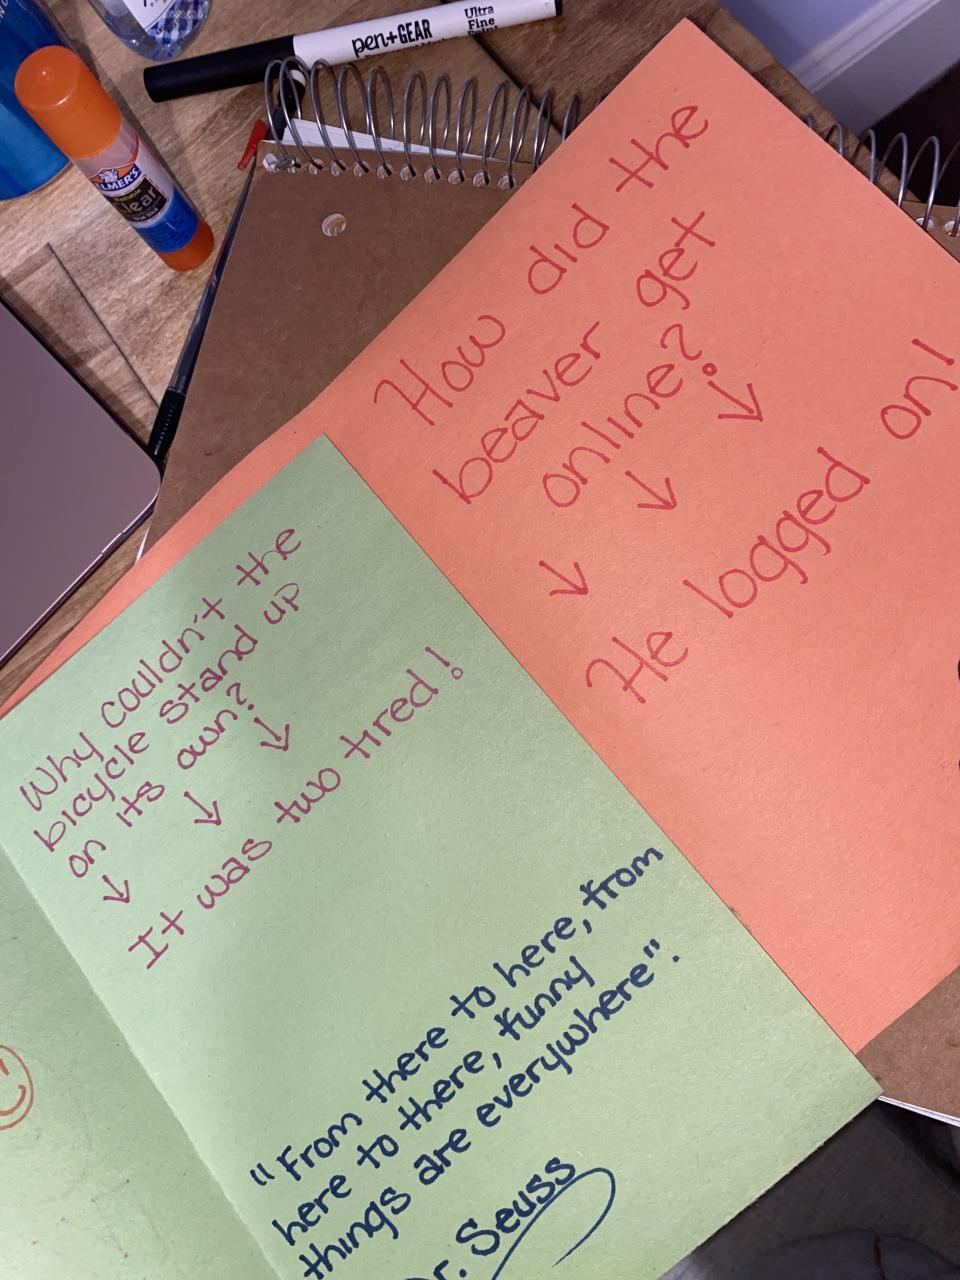 pen+GEAR
Ultra
Fine
Point
ELMER'S
Clear
How did the
beaver get
online?
He logged on!
Why couldn't the
bicycle stand up
on its own?
It was two tired!
"From there to here, from
here to there, funny
things are everywhere".
Dr. Seuss